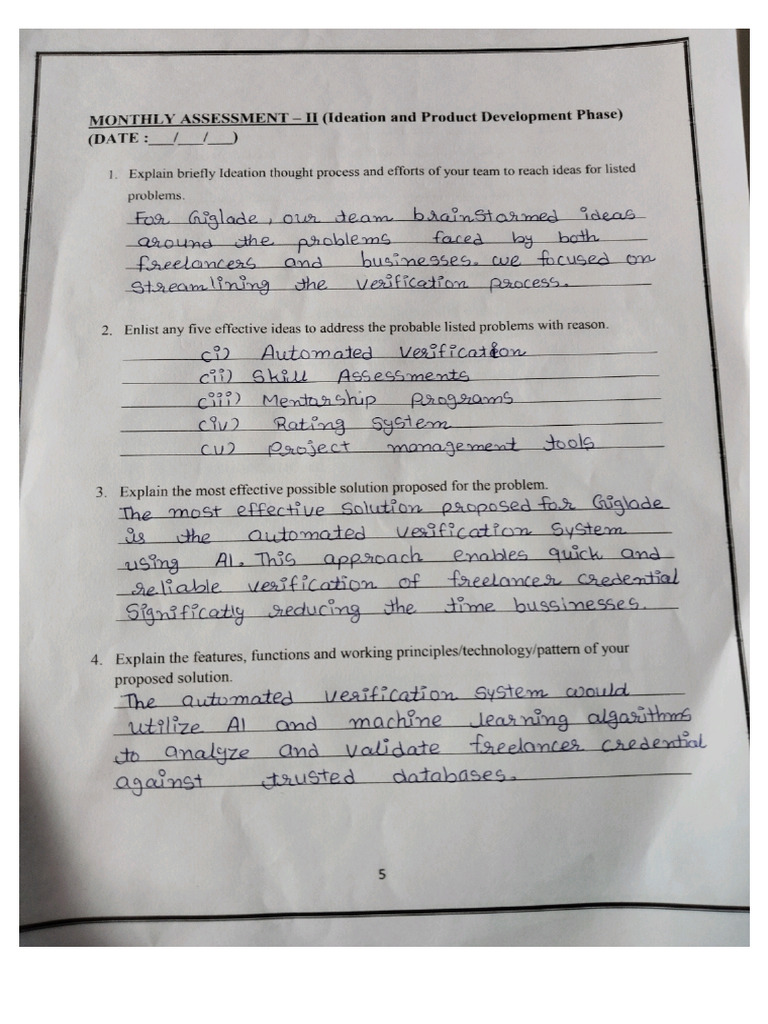 MONTHLY ASSESSMENT – II (Ideation and Product Development Phase)
(DATE :___/___/___)
1. Explain briefly Ideation thought process and efforts of your team to reach ideas for listed
problems.
For Giglade, our team brainstarmed ideas
around the problems faced by both
freelancers and businesses. we focused on
streamlining the verification process.
2. Enlist any five effective ideas to address the probable listed problems with reason.
(i) Automated verification
(ii) Skill Assessments
(iii) Mentorship programs
(iv) Rating System
(v) Project management tools
3. Explain the most effective possible solution proposed for the problem.
The most effective solution proposed for Giglade
is the automated verification system
using AI. This approach enables quick and
reliable verification of freelancer credential
Significatly reducing the time bussinesses.
4. Explain the features, functions and working principles/technology/pattern of your
proposed solution.
The automated verification system would
utilize AI and machine learning algorithms
to analyze and validate freelancer credential
against trusted databases.
5